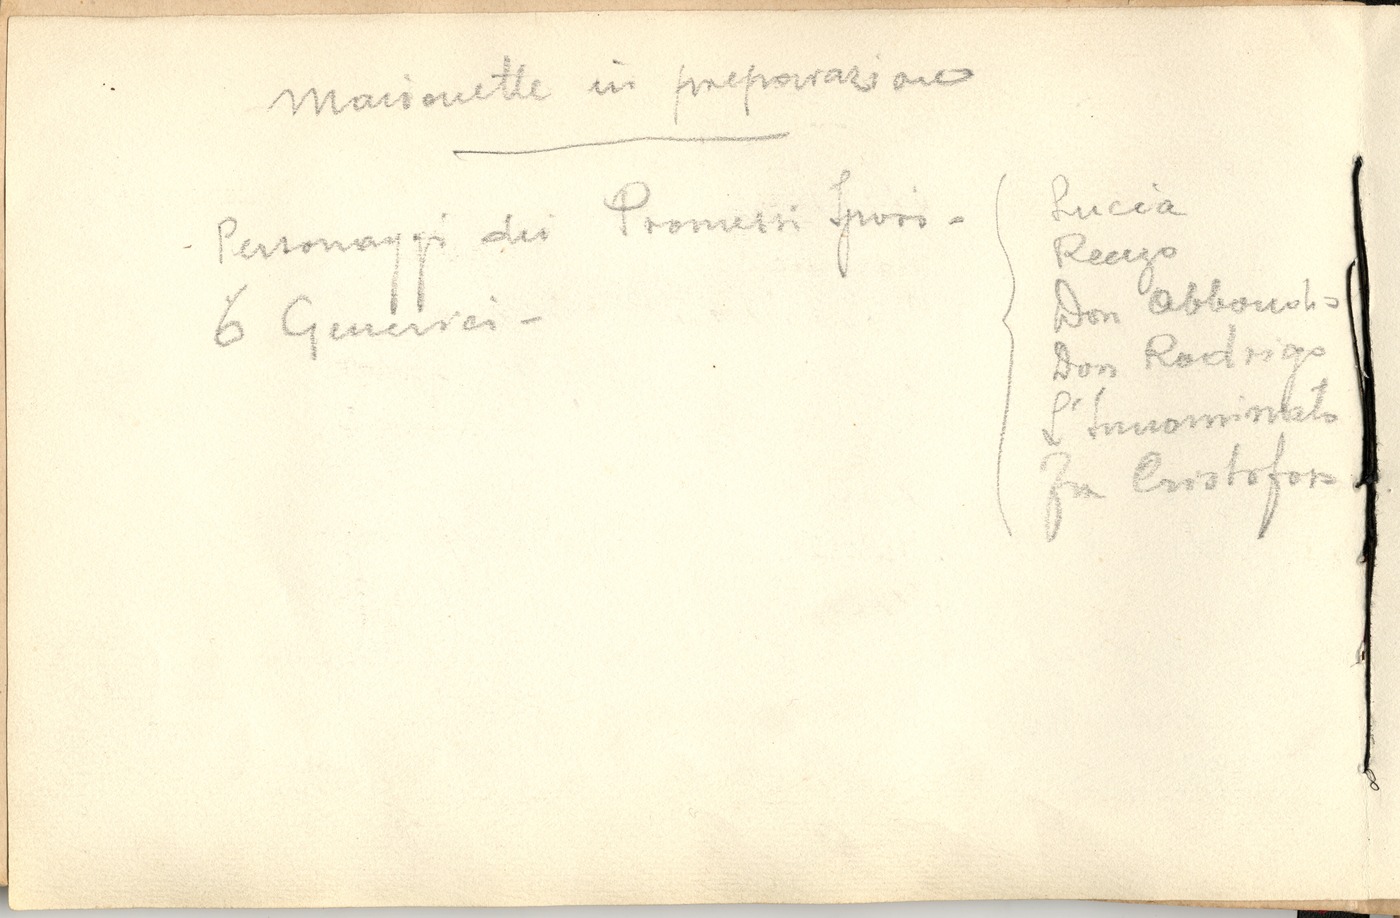 Marionette in preparazione
- Personaggi dei Promessi Sposi -
6 Generici -
Lucia
Renzo
Don Abbondio
Don Rodrigo
L'Innominato
Fra Cristoforo